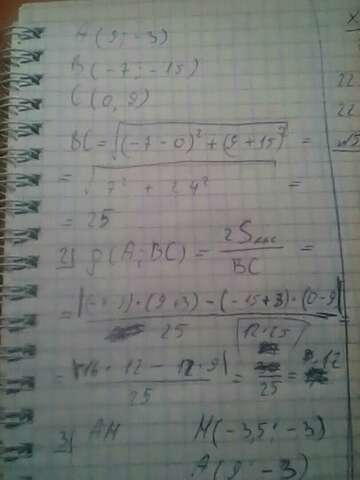 A(9; -3)
B(-7; -15)
C(0, 9)
BC = √((-7-0)² + (9+15)²) =
= √(7² + 24²) =
= 25
2) ρ(A; BC) = 2S / BC =
= |(-7-9)·(9+3) - (-15+3)·(0-9)| / 25
= |-16·12 - 12·9| / 25 = 12·25 / 25 = 12
3) AM M(-3,5; -3)
A(9; -3)